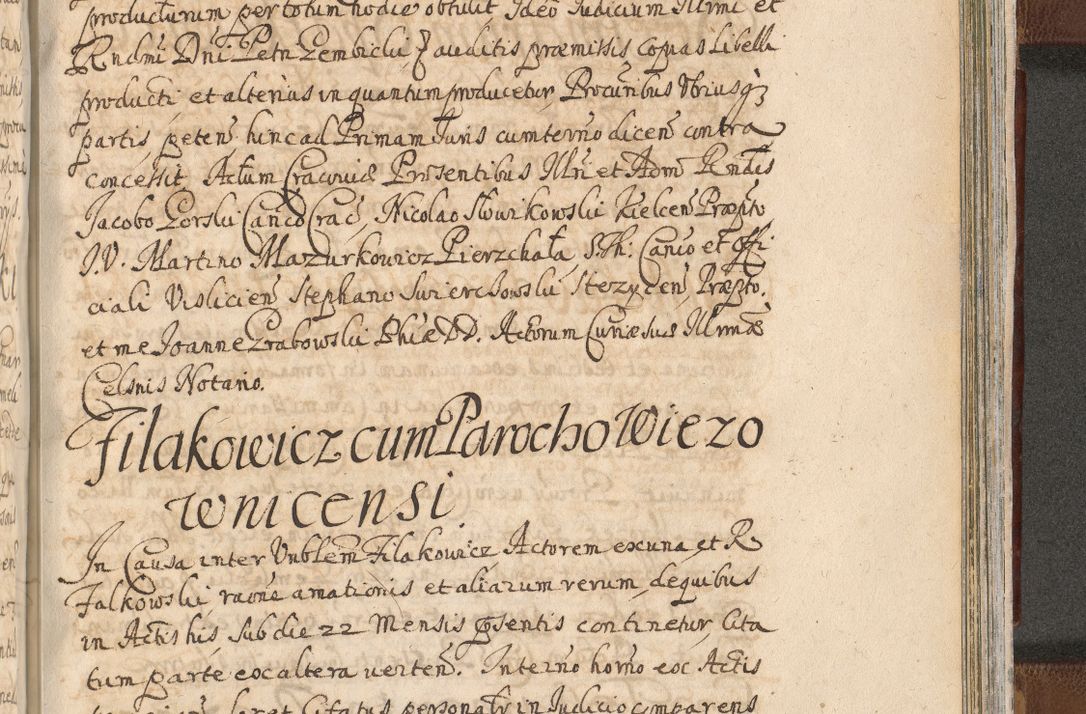 producturum per totum hodie obtulit Ideo Iudicium Illrmi et
Rndmi Dni Petri Gembicki auditis præmissis copias Libelli
producti et alterius inquantum producetur, Procuribus Vtriusqz
partis, peten hinc ad Primam Iuris cum terno dicen contra
concessit, Actum Cracoviæ Præsentibus Illri et Adm Rndis
Jacobo Gorski Canco Crac, Nicolao Slowikowski Kielcen Præpto
I.V. Martino Mazurkowicz Pierzchała S.Th: Canco et Offi
ciali Vislicien Stephano Swierczowski Stezycen Præpto,
et me Joanne Grabowski Phiæ DD. Actorum Curiæ suæ Illrmæ
Celsnis Notario.
Filakowicz cum Parocho Wiezo
wnicensi
In Causa inter Vnblem Filakowicz Actorem ex una et R
Falkowski, raone amationis et aliarum rerum, de quibus
in Actis his, sub die 22 Mensis psentis continetur, Cita
tum parte ex altera verten. Interno horno ex Actis
Citatus personalr in Iudicio comparens